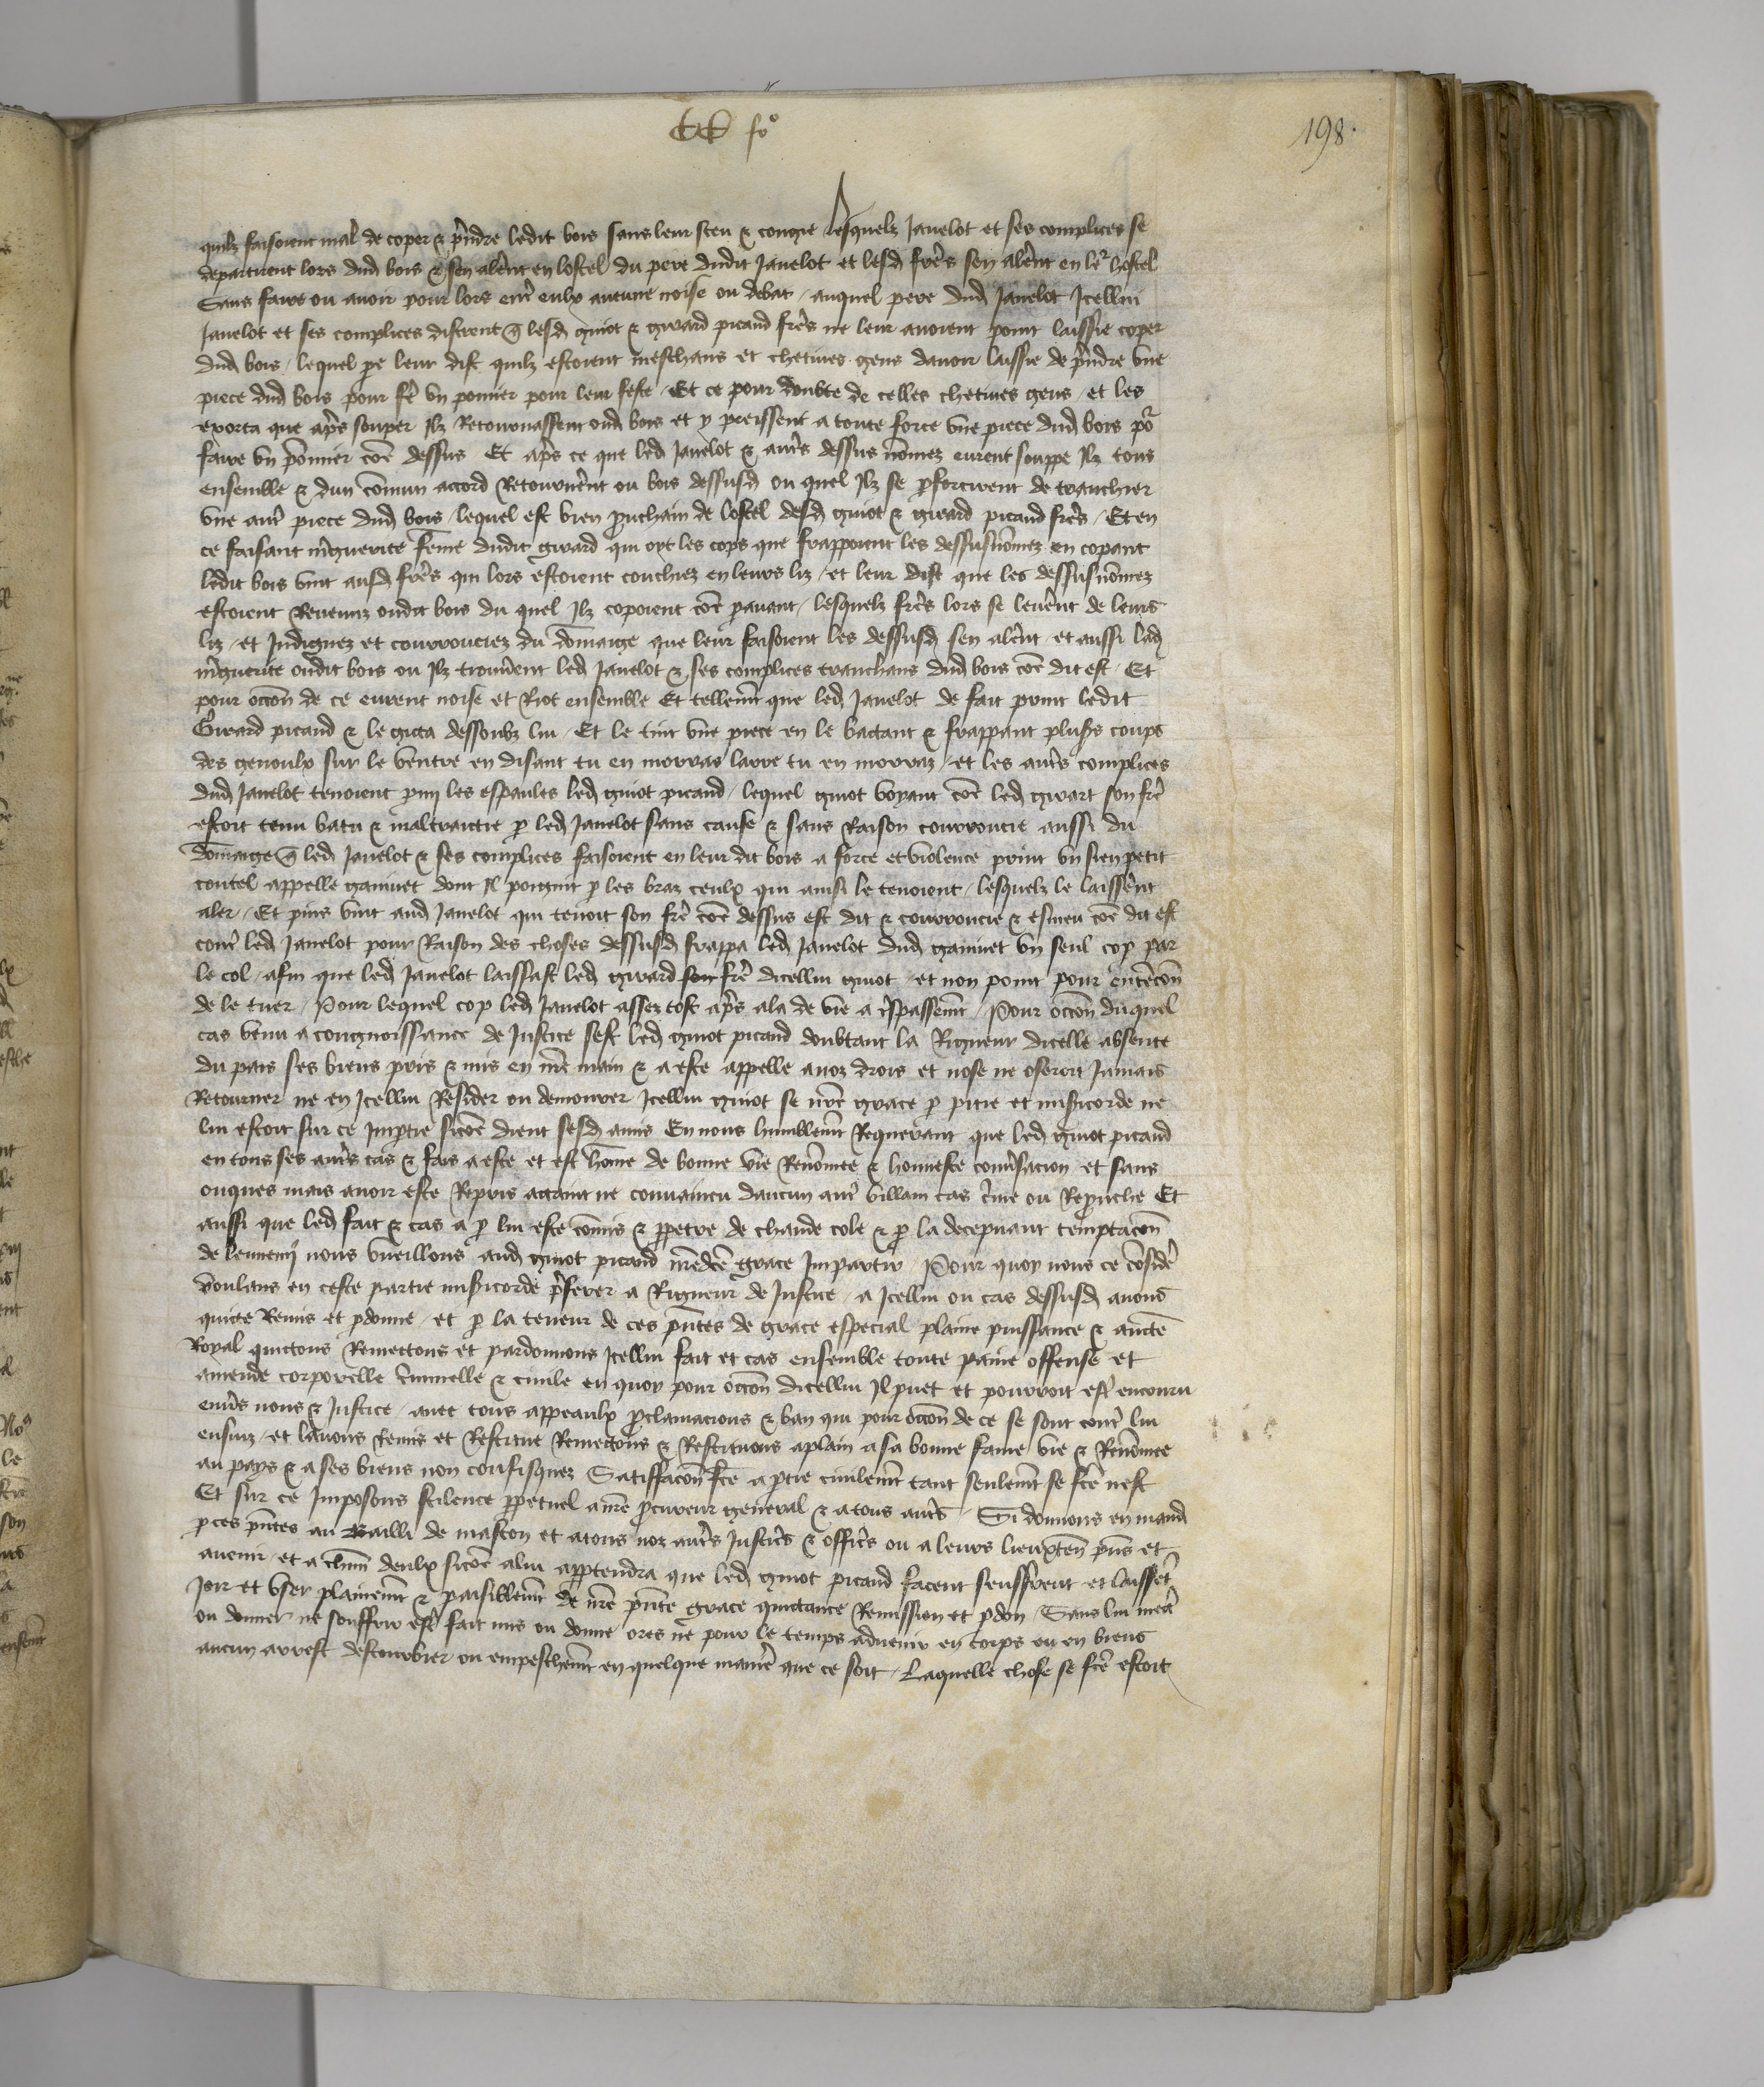 CC fo
198.
quilz faisoient mal de coper & prndre ledit bois sans leur sceu & congie Lesquelz Janelot et ses complices se
departirent lors dud bois & sen alerent en lostel du pere dudit Janelot et lesd freres sen alerent en leur hostel
Sans faire ou avoir pour lors entr eulx aucune noise ou debat / auquel pere dud Janelot Icellui
Janelot et ses complices disrent q lesd guiot & girard picand freres ne leur avoient point laissie coper
dud bois / lequel pe leur dist quilz estoient meschans et chetives gens davoir laissie de prndre une
piece dud bois pour fe un pomier pour leur feste / Et ce pour doubte de celles chetives gens / et les
exorta que aps souper Ilz Retournassent oud bois et y preissent a toute force une piece dud bois por
faire un pommier coe dessus Et aps ce que led Janelot & autrs dessus nommez eurent souppe Ilz tous
ensemble & dun comun accord Retournerent ou bois dessusd ou quel Ilz se pforcirent de tranchier
une autr piece dud bois / lequel est bien prouchain de lostel desd guiot & girard picand freres / Et en
ce faisant mguerite feme dudit girard qui oyt les cops que frappoient les dessusnomez en copant
ledit bois vint ausd freres qui lors estoient couchiez en leurs liz / et leur dist que les dessusnomez
estoient Revenuz oudit bois du quel Ilz copoient coe pavant / lesquelz freres lors se leverent de leurs
liz / et Indignez et courrouciez du domaige que leur faisoient les dessusd sen alerent et aussi lad
mguerite oudit bois ou Ilz trouverent led Janelot & ses complices tranchans dud bois coe dit est / Et
pour occon de ce eurent noise et Riot ensemble Et tellemt que led Janelot de fait print ledit
Girard picand & le gicta dessoubz lui / Et le tint une piece en le batant & frappant plusrs coups
des genoulx sur le ventre en disant tu en morras larre tu en morraz / et les autrs complices
dud Janelot tenoient pmi les espaules led guiot picand / lequel guiot voyant coe led girart son fre
estoit tenu batu & maltraictie p led Janelot sans cause & sans Raison courroucie aussi du
domaige q led Janelot & ses complices faisoient en leur dit bois a force et violence print un sien petit
coutel appelle ganivet dont Il poignit p les braz ceulx qui ainsi le tenoient / lesquelz le laisserent
aler / Et puis vint aud Janelot qui tenoit son fre coe dessus est dit & courroucie & esmeu coe dit est
contr led Janelot pour Raison des choses dessusd frappa led Janelot dud ganivet un seul cop par
le col / afin que led Janelot laissast led girard son fre dicellui guiot / et non point pour entencon
de le tuer / Pour lequel cop led Janelot assez tost aps ala de vie a trespassemt / Pour occon duquel
cas venu a congnoissance de Justice sest led guiot picand doubtant la Rigueur dicelle absente
du pais ses biens pris & mis en nre main & a este appelle a noz drois et nose ne oseroit Jamais
Retourner ne en Icellui Resider ou demourer Icellui guiot se nre grace p pitie et misicorde ne
lui estoit sur ce Imptie sicoe dient sesd amis En nous humblemt Requerant que led guiot picand
en tous ses autrs cas & fais a este et est home de bonne vie Renomee & honneste convsacion et sans
onques mais avoir este Repris actaint ne convaincu daucun autr villain cas crime ou Reprouche Et
aussi que led fait & cas a p lui este comis & ppetre de chaude cole & p la decepvant temptacon
de lennemi nous vueillons aud guiot picand nredce grace Impartir / Pour quoy nous ce considr
voulans en ceste partie misicorde prferer a Rigueur de Justice / a Icellui ou cas dessusd avons
quicte Remis et pdonne / et p la teneur de ces pntes de grace especial plaine puissance & aucte
Royal quictons Remectons et pardonnons Icellui fait et cas ensemble toute paine offense et
amende corporelle criminelle & civile en quoy pour occon dicellui Il puet et pourroit estr encouru
envrs nous & Justice / avec tous appeaulx pclamacions & ban qui pour occon de ce se sont contr lui
ensuiz / et lavons Remis et Restitue Remectons & Restituons a plain a sa bonne fame vie & Renomee
au pays & a ses biens non confisquez Satisfacon fce a ptie civilemt tant seulemt se fce nest
Et sur ce Imposons scilence ppetuel a nre pcureur general & a tous autrs / Si donnons en mand
p ces pntes au Bailli de mascon et a tous noz autrs Justicrs & officrs ou a leurs lieuxten pns et
avenir / et a chun deulx sicoe a lui apptendra que led guiot picand facent seuffrent et laissent
Joir et user plainemt & paisiblemt de nre pnte grace quictance Remission et pdon / Sans lui mectr
ou donner ne souffrir estr fait mis ou donne ores ne pour le temps advenir en corps ou en biens
aucun arrest destourbier ou empeschemt en quelque manre que ce soit / Laquelle chose se fce estoit